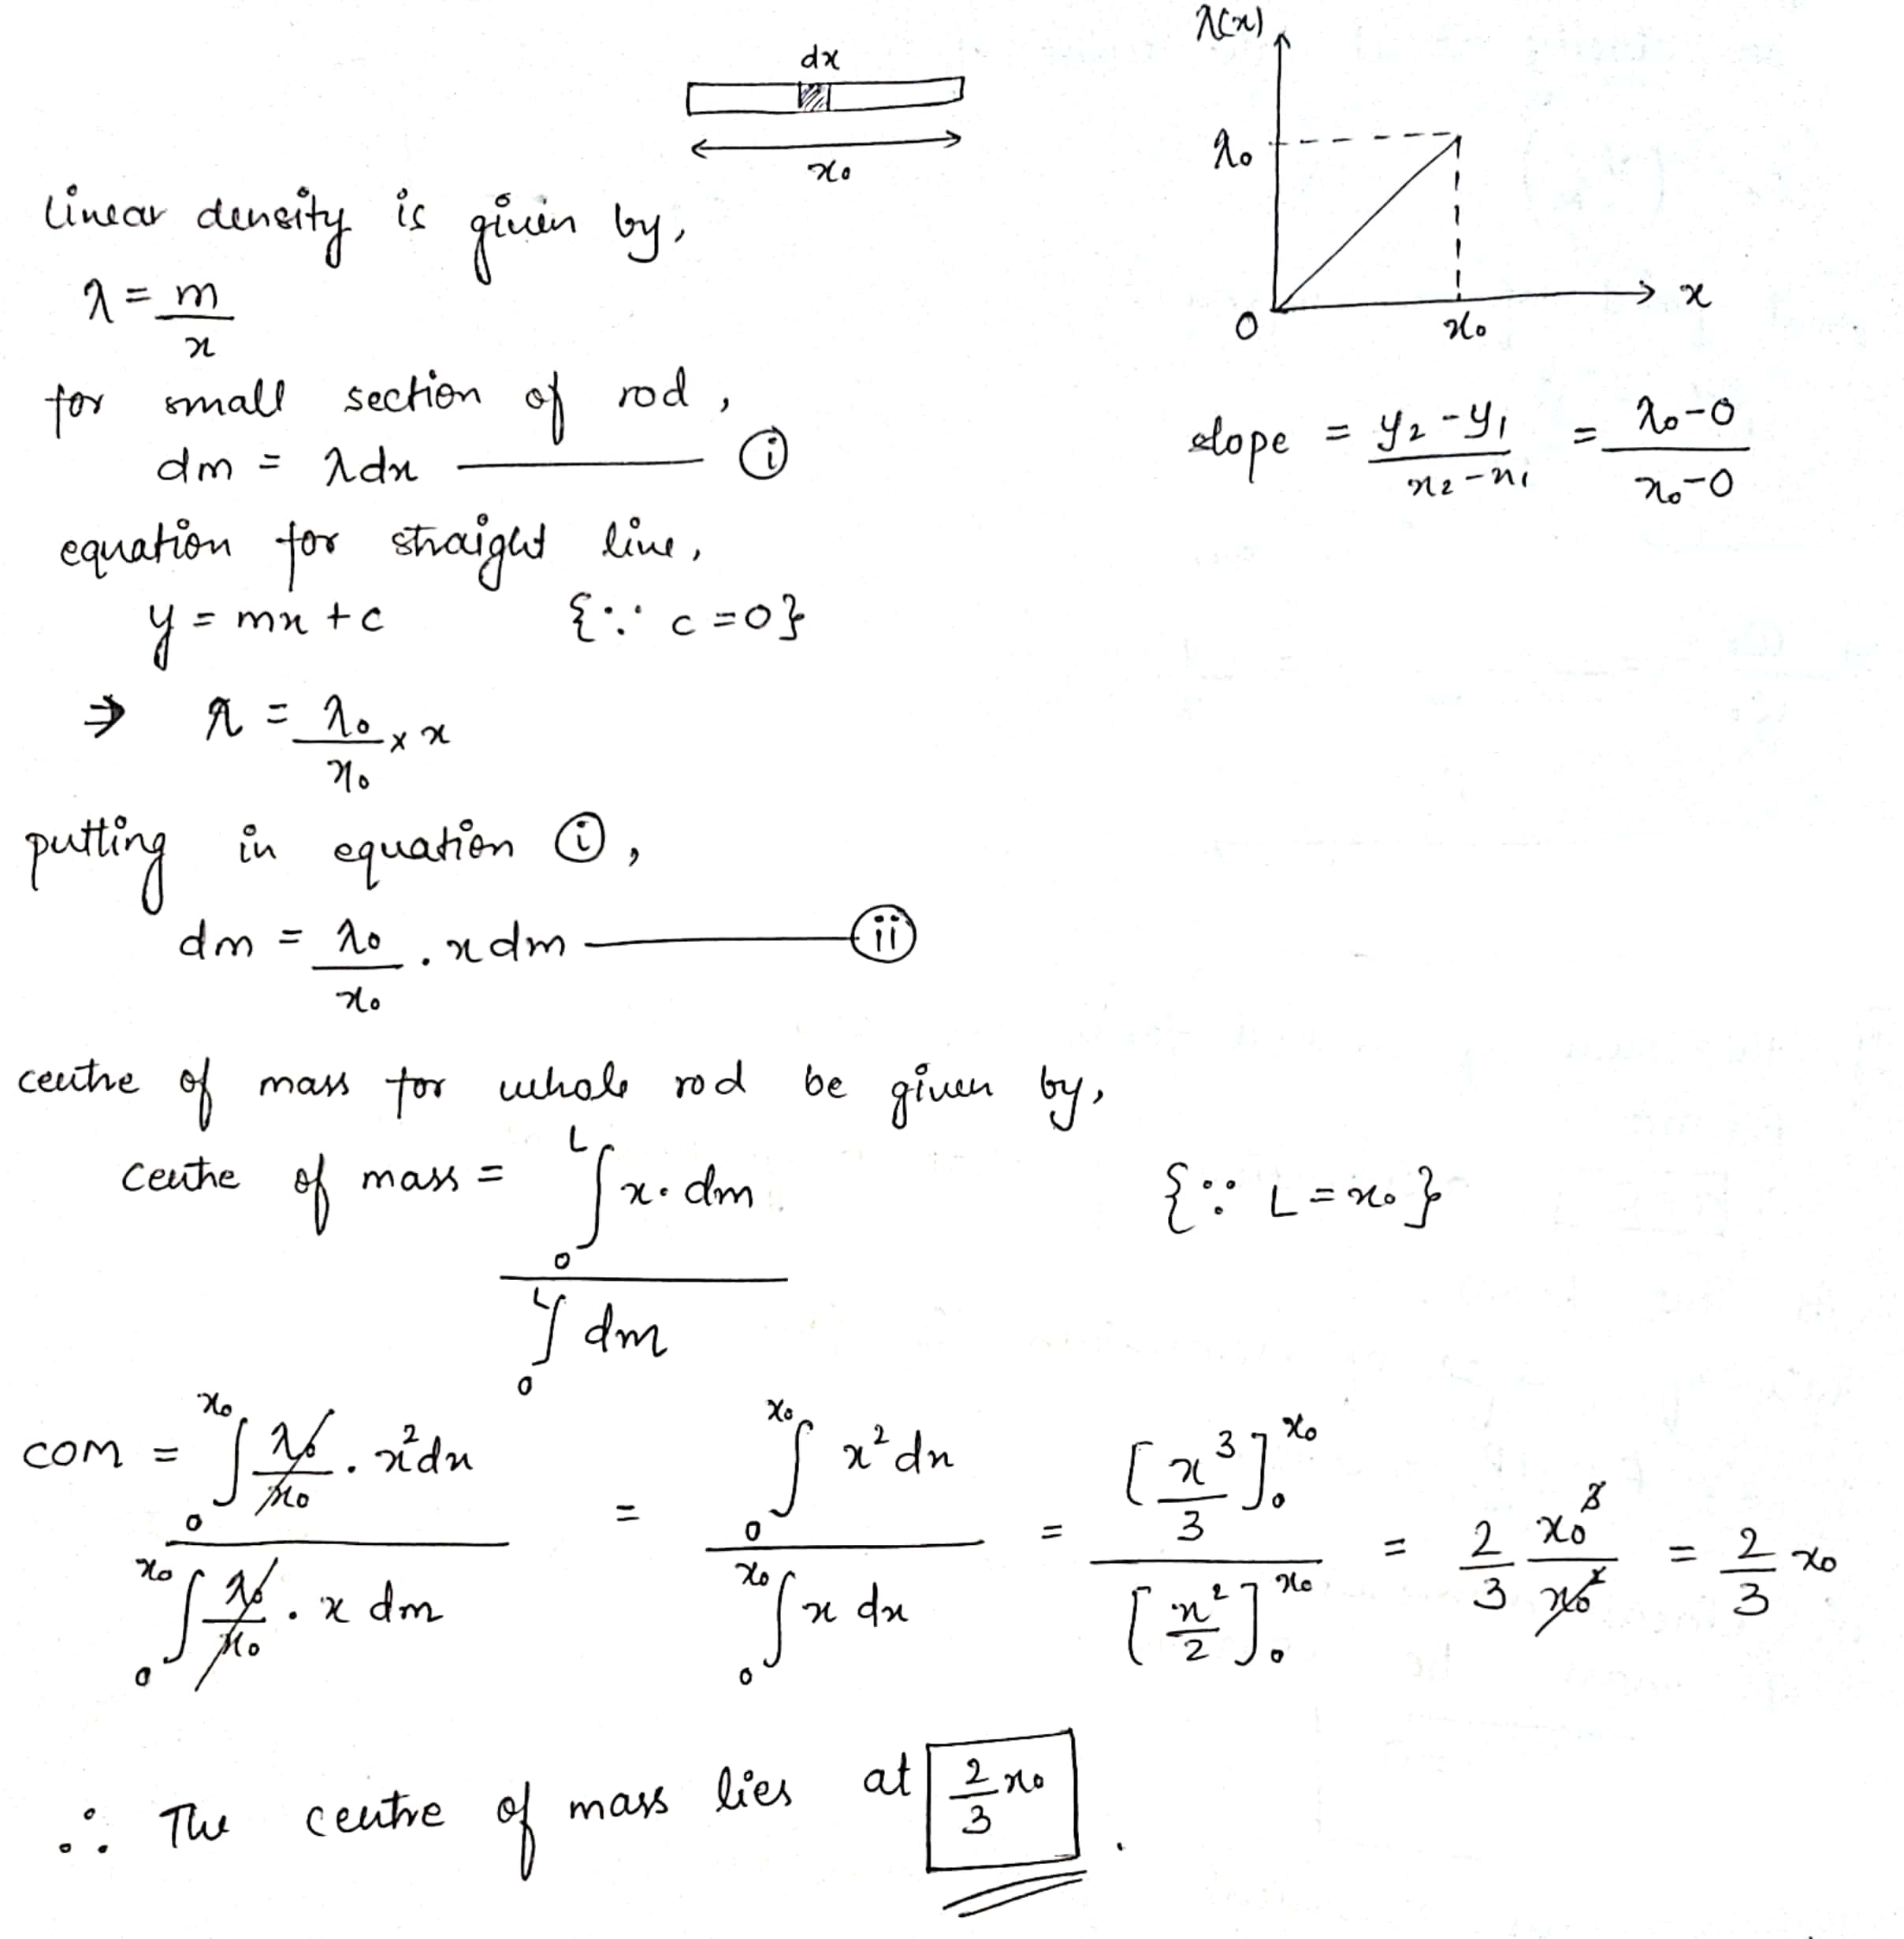 dx
x₀
λ(x)
λ₀
O
x₀
x
linear density is given by,
λ = m/x
for small section of rod,
dm = λdx ——— (i)
slope = (y₂ - y₁)/(x₂ - x₁) = (λ₀ - 0)/(x₀ - 0)
equation for straight line,
y = mx + c {∵ c = 0}
⇒ λ = λ₀/x₀ × x
putting in equation (i),
dm = λ₀/x₀ . x dm ——— (ii)
centre of mass for whole rod be given by,
centre of mass = ∫₀ᴸ x. dm / ∫₀ᴸ dm {∵ L = x₀}
com = ∫₀^x₀ λ₀/x₀ . x² dx / ∫₀^x₀ λ₀/x₀ . x dm = ∫₀^x₀ x² dx / ∫₀^x₀ x dx = [x³/3]₀^x₀ / [x²/2]₀^x₀ = 2/3 x₀³/x₀² = 2/3 x₀
∴ The centre of mass lies at 2/3 x₀ .